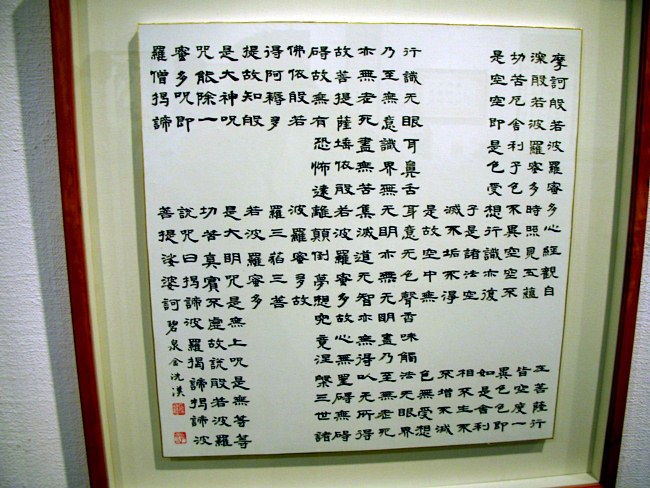 摩訶般若波羅蜜多心經觀自在菩薩行
深般若波羅蜜多時照見五蘊皆空度一
切苦厄舍利子色不異空空不異色色即
是空空即是色受想行識亦復如是舍利
子是諸法空相不生不
滅不垢不淨不增不滅
是故空中無色無受想
行識无眼耳鼻舌耳意无色聲香味觸法无眼界
乃至無意識界無无明亦無无明盡乃至無老死
亦無老死盡無苦集滅道无智亦無得以无所得
故菩提薩埵依般若波羅蜜多故心無罣碍無碍
碍故無有恐怖遠離顛倒夢想究竟涅槃三世諸
佛依般若波羅蜜多故
得阿耨多羅三藐三菩
提故知般若波羅蜜多
是大神呪是大明呪是無上呪是無等等
呪能除一切苦真實不虛故說般若波羅
蜜多呪即說呪曰揭諦波羅揭諦揭諦波
羅僧揭諦菩提娑婆訶 碧泉金洗漢